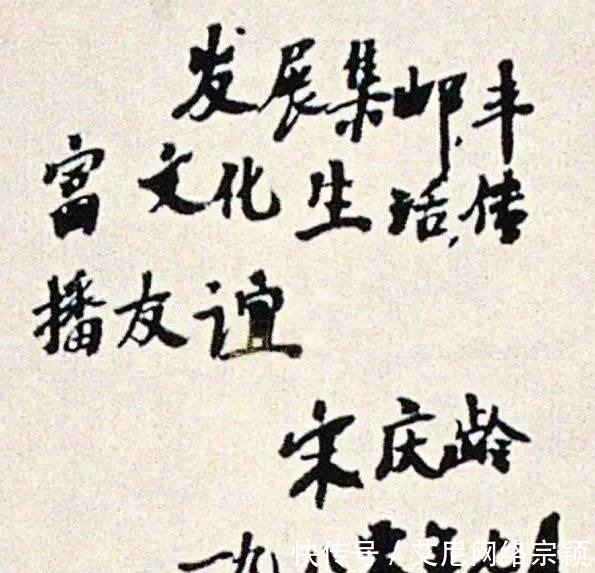 发展集邮,丰
富文化生活,传
播友谊
宋庆龄
一九八
快传号/艾尼网络宗颖